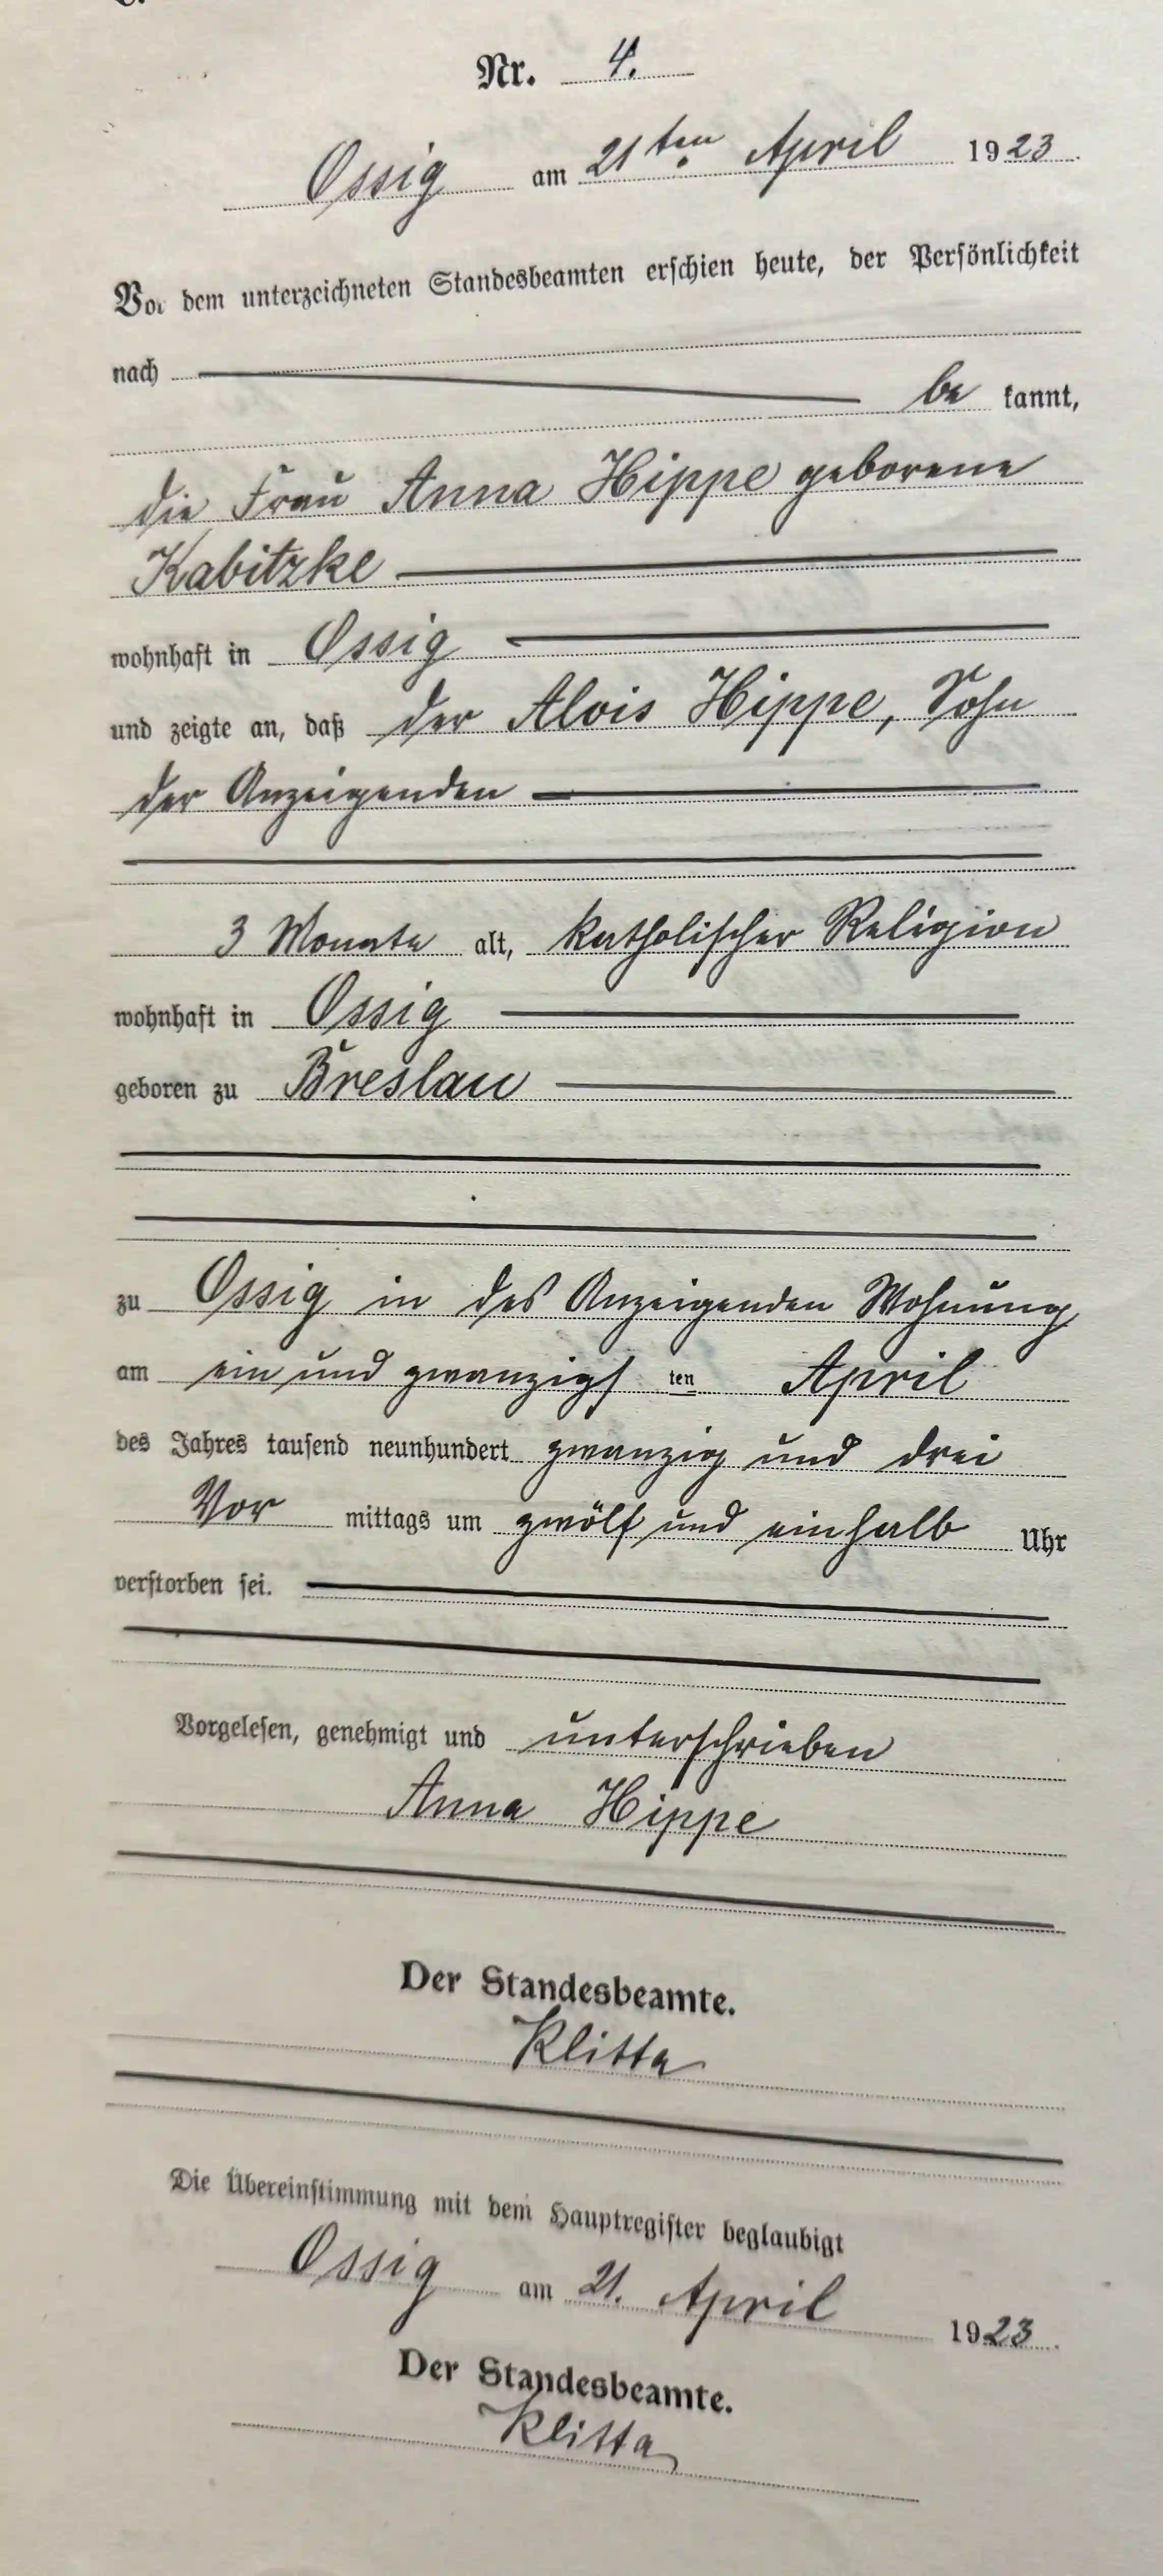 Nr. 4.
Ossig am 21ten April 1923.
Vor dem unterzeichneten Standesbeamten erschien heute, der Persönlichkeit
nach be kannt,
die Frau Anna Hippe geborene
Kabitzke
wohnhaft in Ossig
und zeigte an, daß der Alois Hippe, Sohn
der Anzeigenden
3 Monate alt, katholischer Religion
wohnhaft in Ossig
geboren zu Breslau
zu Ossig in des Anzeigenden Wohnung
am ein und zwanzigs ten April
des Jahres tausend neunhundert zwanzig und drei
Vor mittags um zwölf und einhalb Uhr
verstorben sei.
Vorgelesen, genehmigt und unterschrieben
Anna Hippe
Der Standesbeamte.
Klitta
Die Übereinstimmung mit dem Hauptregister beglaubigt
Ossig am 21. April 1923.
Der Standesbeamte.
Klitta